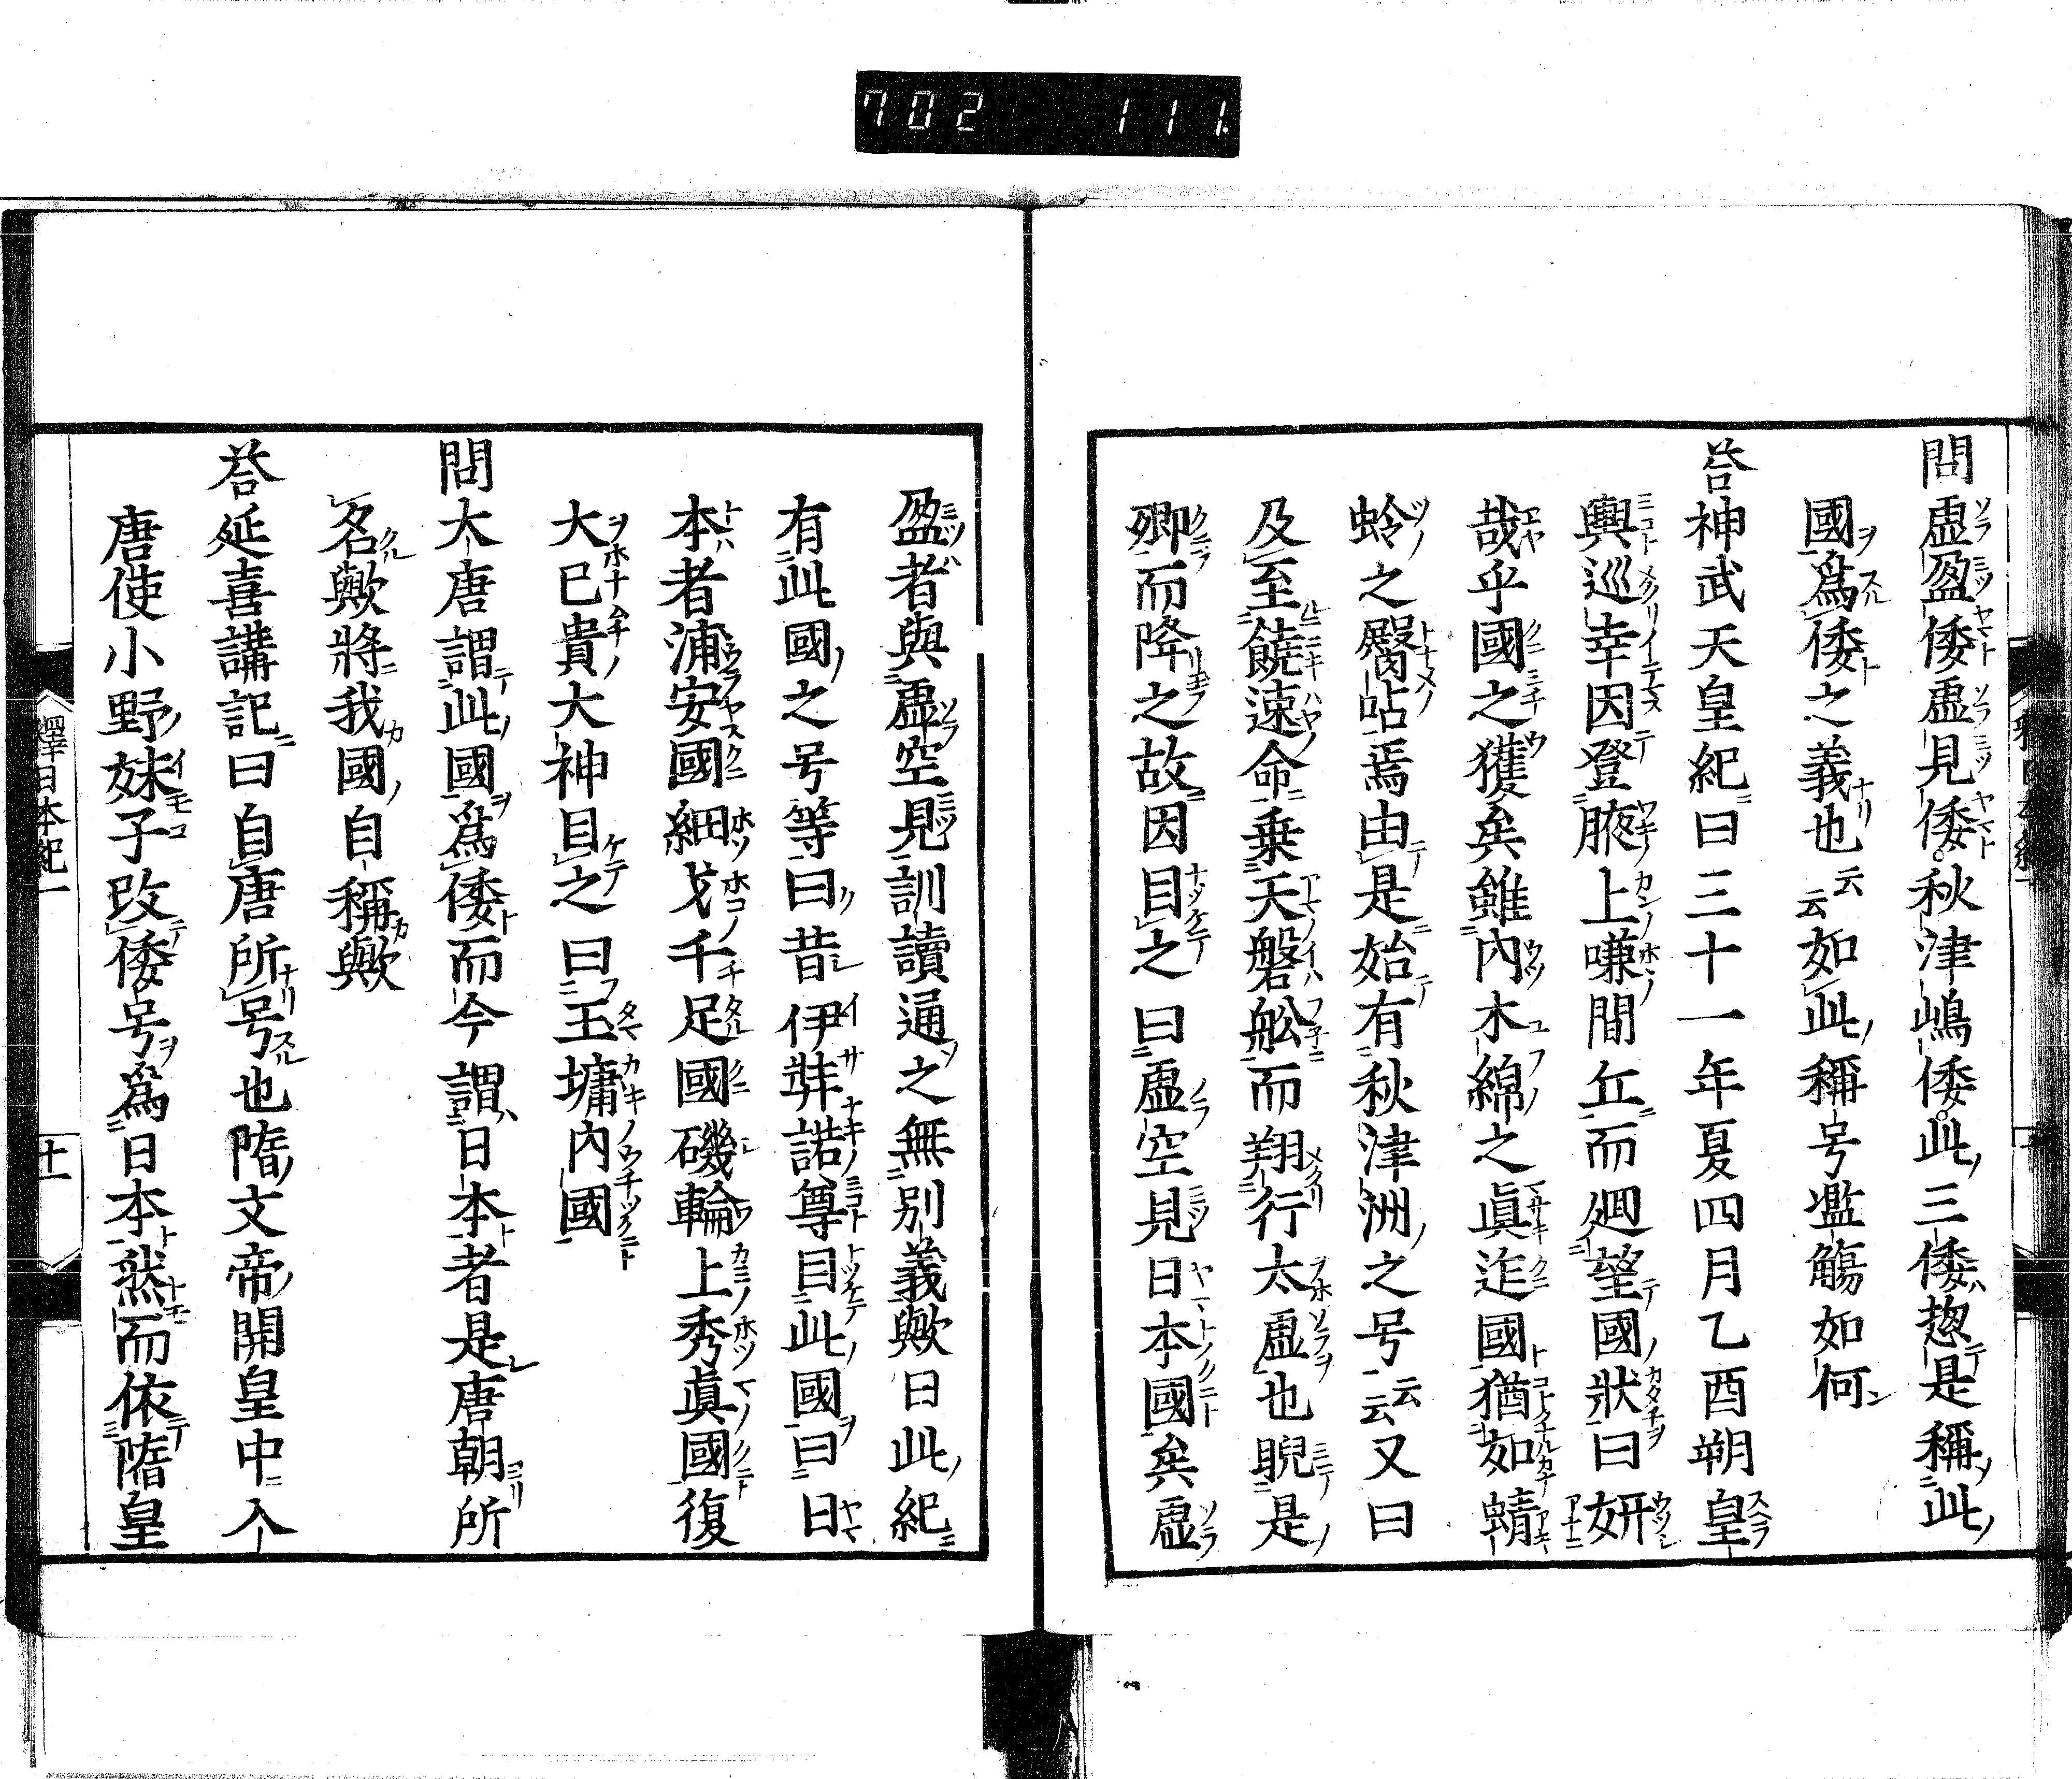 702 111.
問虛盈倭虛見倭秋津嶋倭此三倭惣是稱此
國爲倭之義也云云如此稱号濫觴如何
答神武天皇紀曰三十一年夏四月乙酉朔皇
輿巡幸因登腋上嗛間丘而廻望國狀曰姸
哉乎國之獲矣雖內木綿之眞迮國猶如蜻
蛉之臀呫焉由是始有秋津洲之号云云又曰
及至饒速命乘天磐舩而翔行太虛也睨是
鄉而降之故因目之曰虛空見日本國矣虛
盈者與虛空見訓讀通之無別義歟日此紀
有此國之号等曰昔伊弉諾尊目此國曰日
本者浦安國細戈千足國磯輪上秀眞國復
大己貴大神目之曰玉墻內國
問大唐謂此國爲倭而今謂日本者是唐朝所
名歟將我國自稱歟
答延喜講記曰自唐所号也隋文帝開皇中入
唐使小野妹子改倭号爲日本然而依隋皇
釋日本紀一
十一